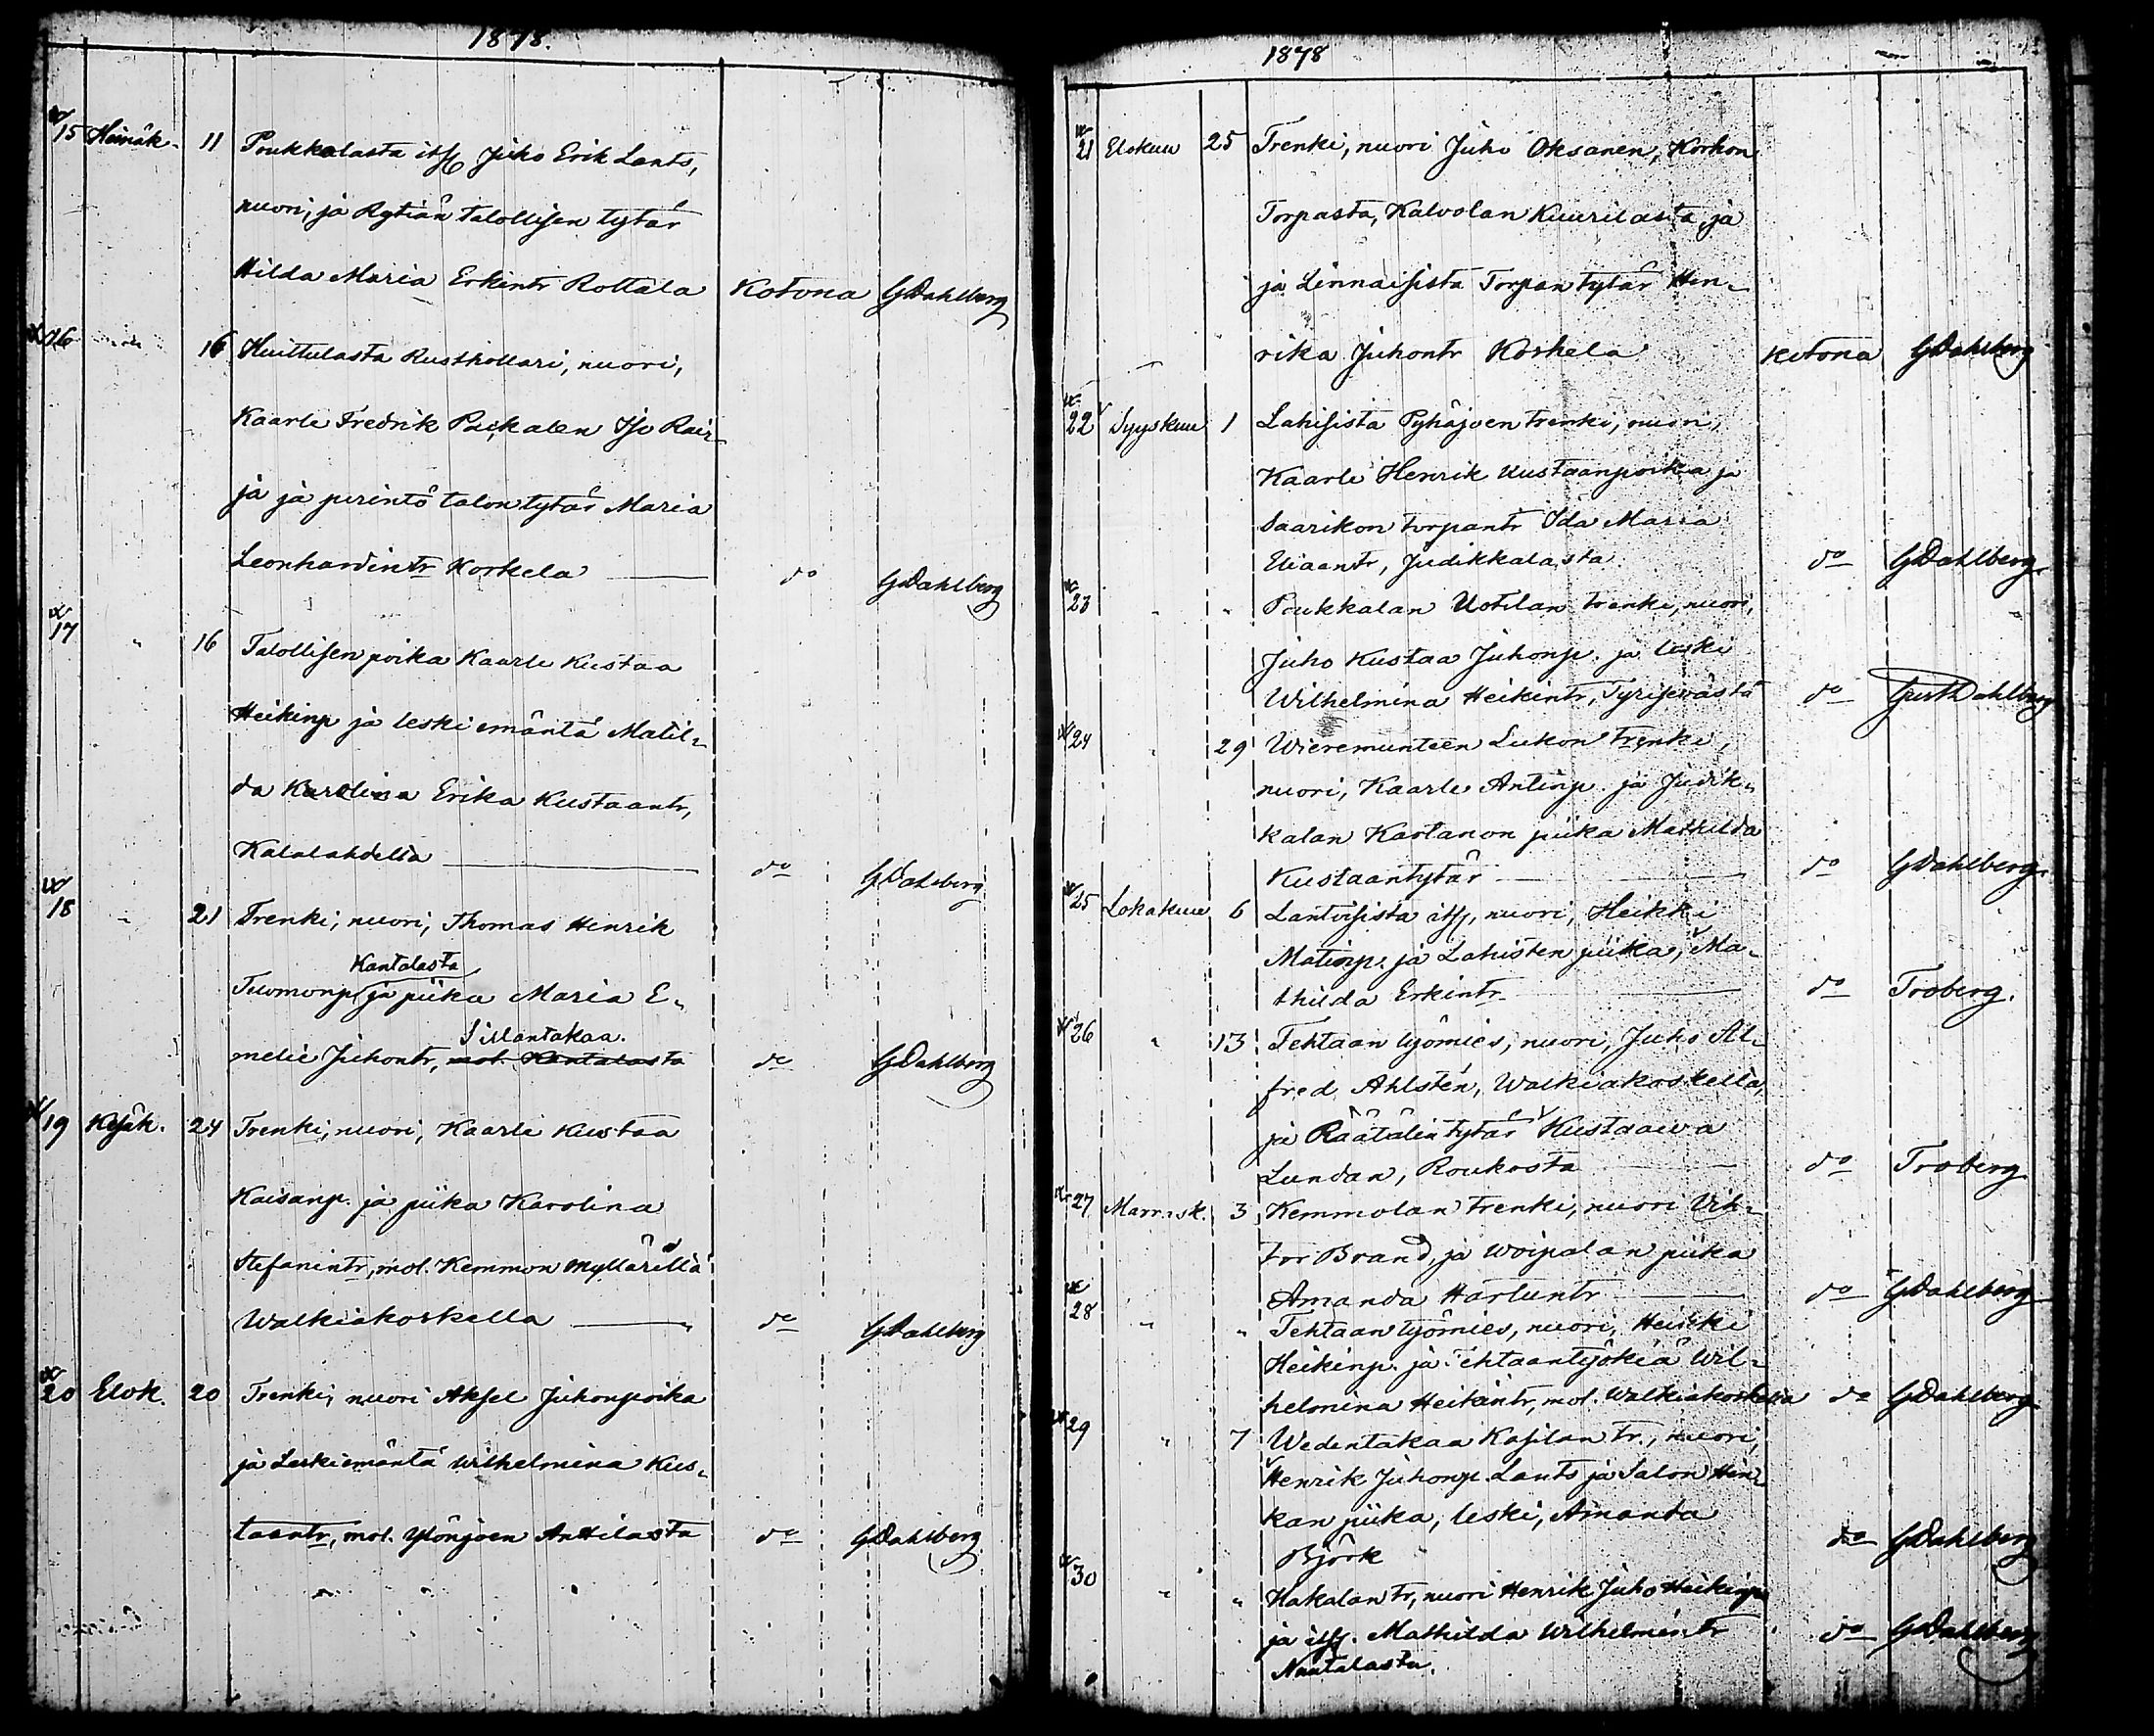 1878.
15 Heinäk. 11 Poukkalasta its. Juho Erik Lants,
nuori, ja Rytiän talollisen tytär
Hilda Maria Erkintr Rottala Kotona GDahlberg
16 16 Huittulasta Rusthollari, nuori,
Kaarle Fredrik Iso Rai-
ja ja perintö talon tytär Maria
Leonhardintr Korkela do GDahlberg
17 " 16 Talollisen poika Kaarle Kustaa
Heikinp ja leski emäntä Matil-
da Karolina Erika Kustaantr,
Kalalahdella do GDahlberg
18 " 21 Trenki, nuori, Thomas Henrik
Kantalasta
Tuomonp, ja piika Maria E-
Sillantakaa.
melie Juhontr, mol. Kantalasta do GDahlberg
19 Kesäk. 24 Trenki, nuori, Kaarle Kustaa
Kaisanp. ja piika Karolina
Stefanintr, mol. Kemmon Myllärillä
Walkiakoskella do GDahlberg
20 Elok. 20 Trenki, nuori Aksel Juhonpoika
ja Leskiemäntä Wilhelmina Kus-
taantr, mol. Ylönjoen Anttilasta do GDahlberg
1878
21 Elokuu 25 Trenki, nuori Juho Oksanen, Korkon
Torpasta, Kalvolan Kuurilasta, ja
ja Linnaisista Torpan tytär Hen-
rika Juhontr Koskela kotona GDahlberg
22 Syyskuu 1 Lahisista Pyhäjoen trenki, nuori,
Kaarle Henrik Kustaanpoika ja
Saarikon torpantr Ida Maria
Eliaantr, Judikkalasta do GDahlberg.
23 " " Poukkalan Uotilan trenki, nuori,
Juho Kustaa Juhonp. ja leski
Wilhelmina Heikintr, Tyrisevästä do Gust Dahlberg
24 " 29 Wieremunteen Lukon trenki,
nuori, Kaarle Antinp. ja Judik-
kalan Kartanon piika Mathilda
Kustaantytär do GDahlberg.
25 Lokakuu 6 Lantoisista its., nuori, Heikki
Matinp. ja Lahisten piika, Ma-
thilda Erkintr do Troberg.
26 " 13 Tehtaan työmies, nuori, Juho Al-
fred Ahlstén, Walkiakoskella,
ja Räätälin tytär Kustaava
Lundan, Roukosta do Troberg
27 Marrask. 3 Kemmolan trenki, nuori Vik-
tor Brand, ja Woipalan piika
Amanda Hartuntr do GDahlberg
28 " " Tehtaan työmies, nuori, Heikki
Heikinp. ja tehtaantyökiä Wil-
helmina Heikintr, mol. Walkiakoskella do GDahlberg
29 " 7 Wedentakaa Kasilan tr., nuori,
Henrik Juhonp. Lants ja Salon Hin-
kan piika, leski, Amanda
Björk do GDahlberg
30 " " Hakalan tr, nuori Henrik Juho Heikinp
ja its. Mathilda Wilhelmintr do GDahlberg
Naatalasta.